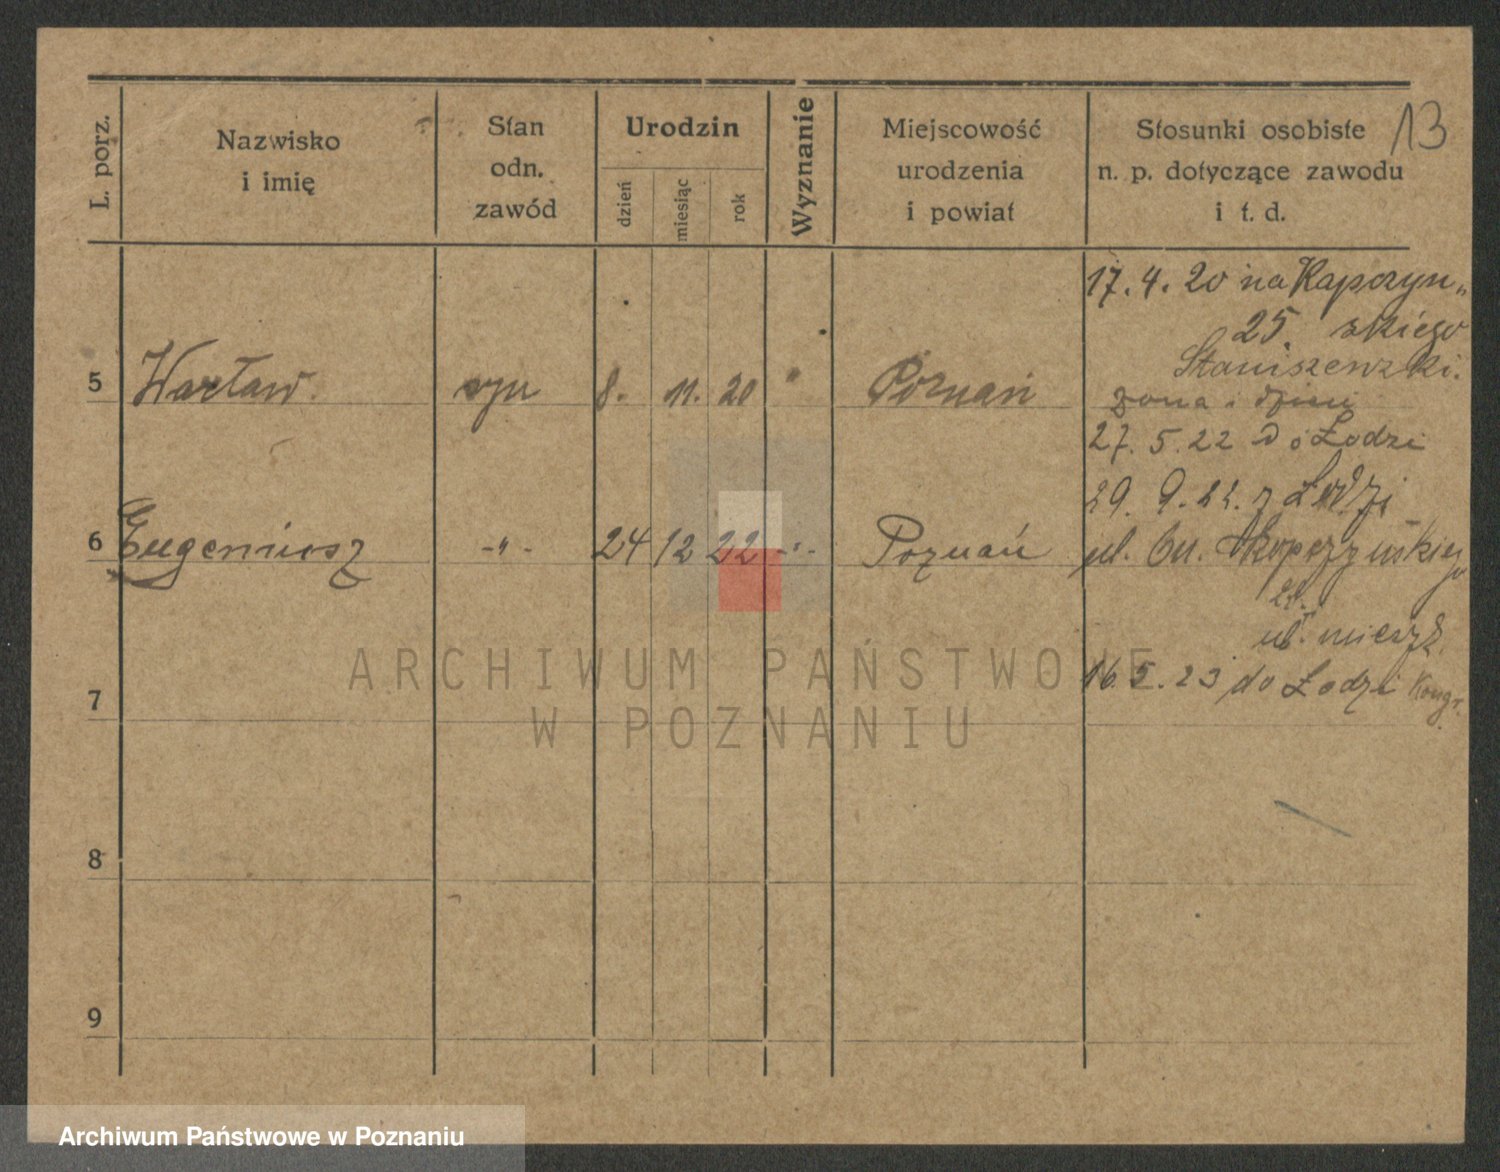 13
L. porz.
Nazwisko
i imię
Stan
odn.
zawód
Urodzin
dzień
miesiąc
rok
Wyznanie
Miejscowość
urodzenia
i powiat
Stosunki osobiste
n. p. dotyczące zawodu
i t. d.
17. 4. 20 na Kapczyn„
25. skiego
Staniszewski.
5 Wacław. syn 8. 11. 20 " Poznań
żona i dzieci
27. 5. 22 do Łodzi
29. 9. 22. z Łodzi
6 Eugeniusz -"- 24 12 22 -"- Poznań
ul.
ul. mieszk.
16. 5. 23 do Łodzi Kongr.
7
8
9
ARCHIWUM PAŃSTWOWE
W POZNANIU
Archiwum Państwowe w Poznaniu